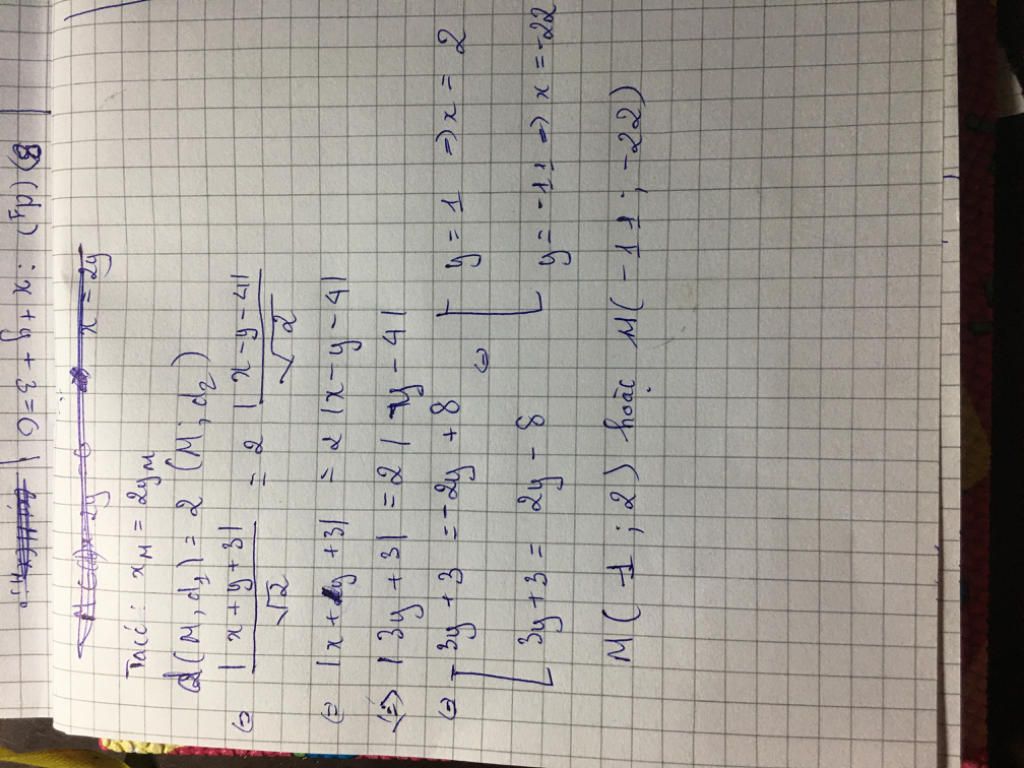 B) (d₁) : x + y + 3 = 0
x = 2y
Ta có : x_M = 2y_M
d(M, d₁) = 2 (M; d₂)
⇔ |x + y + 3| / √2 = 2 |x - y - 4| / √2
⇔ |x + y + 3| = 2 |x - y - 4|
⇔ | 3y + 3 | = 2 | y - 4 |
⇔ [ 3y + 3 = -2y + 8 ⇔ [ y = 1 ⇒ x = 2
3y + 3 = 2y - 8 y = -11 ⇒ x = -22
M( 1 ; 2 ) hoặc M( -11 ; -22 )